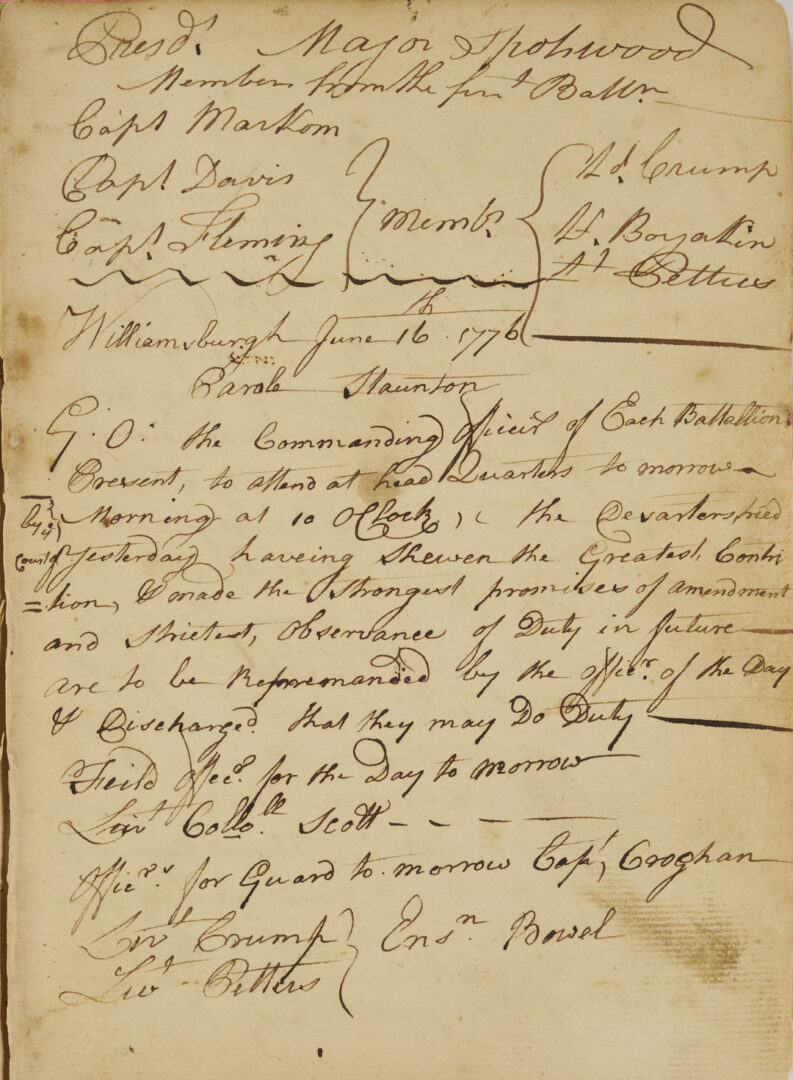 Presdt. Major Spotswood
Members from the first Battn
Capt Markom
Capt. Davis
Capt. Fleming
Membrs.
Lt. Crump
Lt. Boyakin
Lt Pettus
Williamsburgh June 16th 1776
Parole Staunton
G. O. the Commanding officers of Each Battallion
Present, to attend at head Quarters to morrow
Morning at 10 OClock, the Desarters tried
by ye Court of Yesterday haveing Shewen the Greatest Contri
=tion, & made the Strongest promises of amendment
and Strictest, Observance of Duty in future
are to be Repremanded by the offier. of the Day
& Discharged that they may Do Duty
Feild offecr. for the Day to morrow
Liut Collo.ll Scott - - - -
Offierrs. for Guard to morrow Capt, Croghan
Liut Crump Ensn Bowel
Liut. Petters